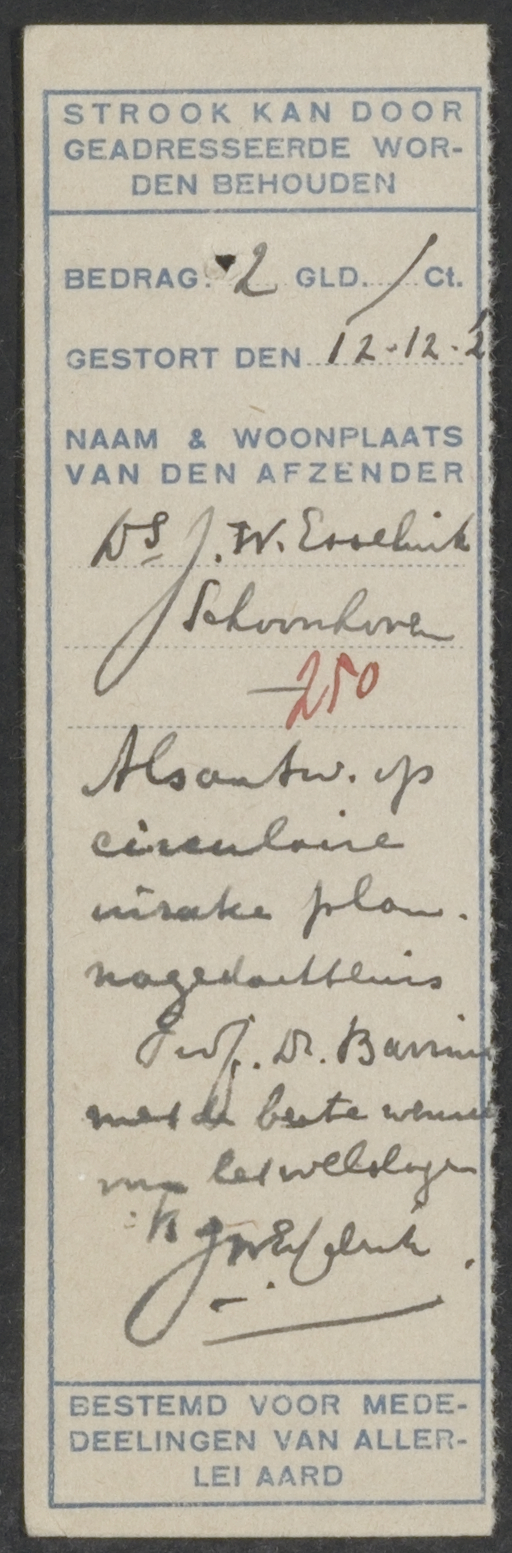 STROOK KAN DOOR
GEADRESSEERDE WOR-
DEN BEHOUDEN
BEDRAG: 2 GLD. / Ct.
GESTORT DEN 12-12-2
NAAM & WOONPLAATS
VAN DEN AFZENDER
Ds J. W. Esselink
Schoonhoven
250
Als antw. op
circulaire
inzake plan.
nagedachtenis
Prof. Dr. Bavinck
met de beste wensch
het welslagen
JWEsselink
BESTEMD VOOR MEDE-
DEELINGEN VAN ALLER-
LEI AARD